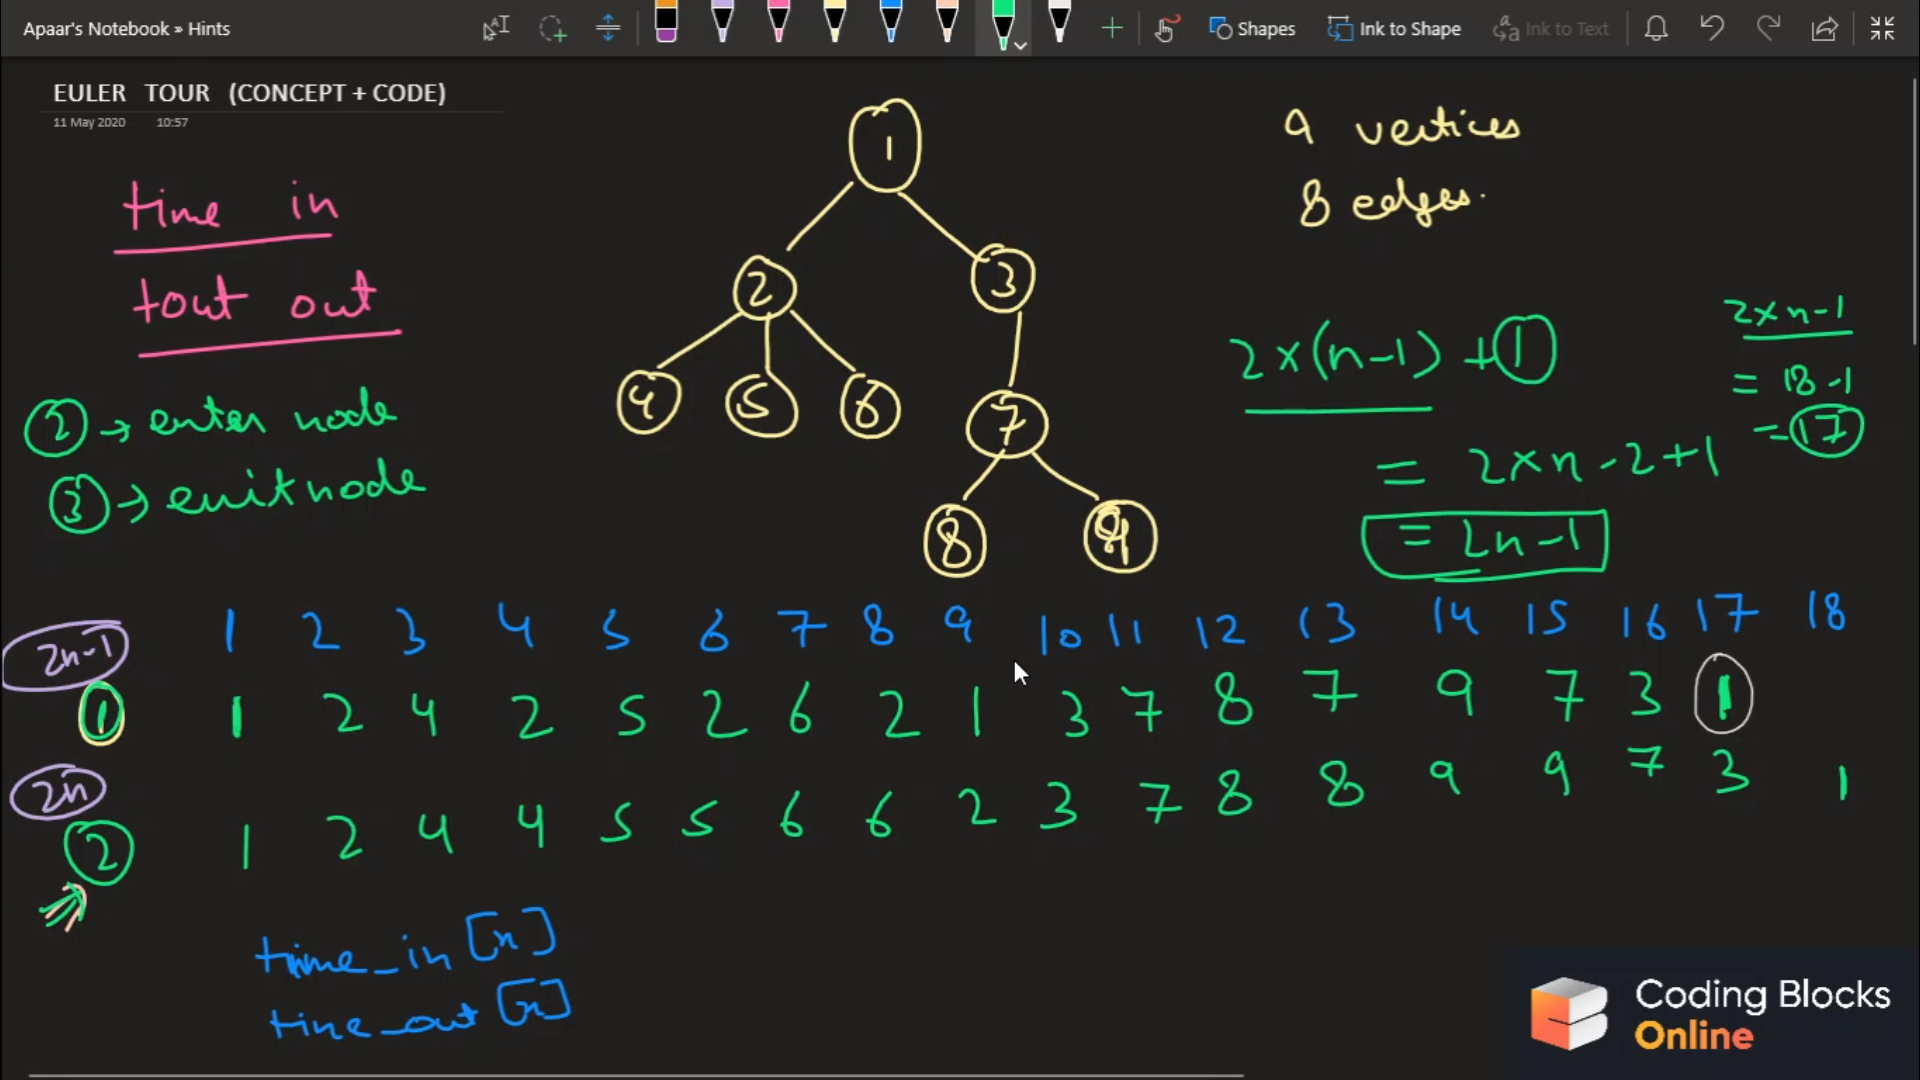 Apaar's Notebook » Hints
Shapes
Ink to Shape
Ink to Text
EULER TOUR (CONCEPT + CODE)
11 May 2020 10:57
time in
tout out
2 → enter node
3 → exit node
1
2 3
4 5 6 7
8 9
9 vertices
8 edges.
2×(n-1) + 1
= 2×n-2+1
= 2n-1
2×n-1
= 18-1
= 17
1 2 3 4 5 6 7 8 9 10 11 12 13 14 15 16 17 18
2n-1
1 1 2 4 2 5 2 6 2 1 3 7 8 7 9 7 3 1
2n
2 1 2 4 4 5 5 6 6 2 3 7 8 8 9 9 7 3 1
time_in [x]
time_out [x]
Coding Blocks
Online